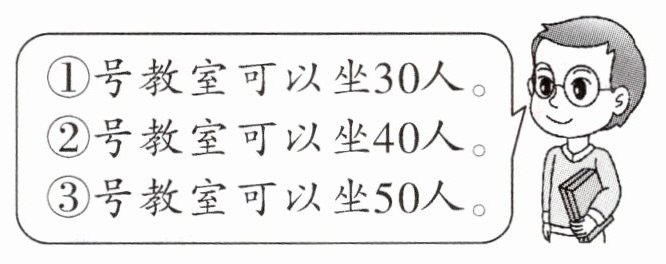 ①号教室可以坐30人。
②号教室可以坐40人。
③号教室可以坐50人。